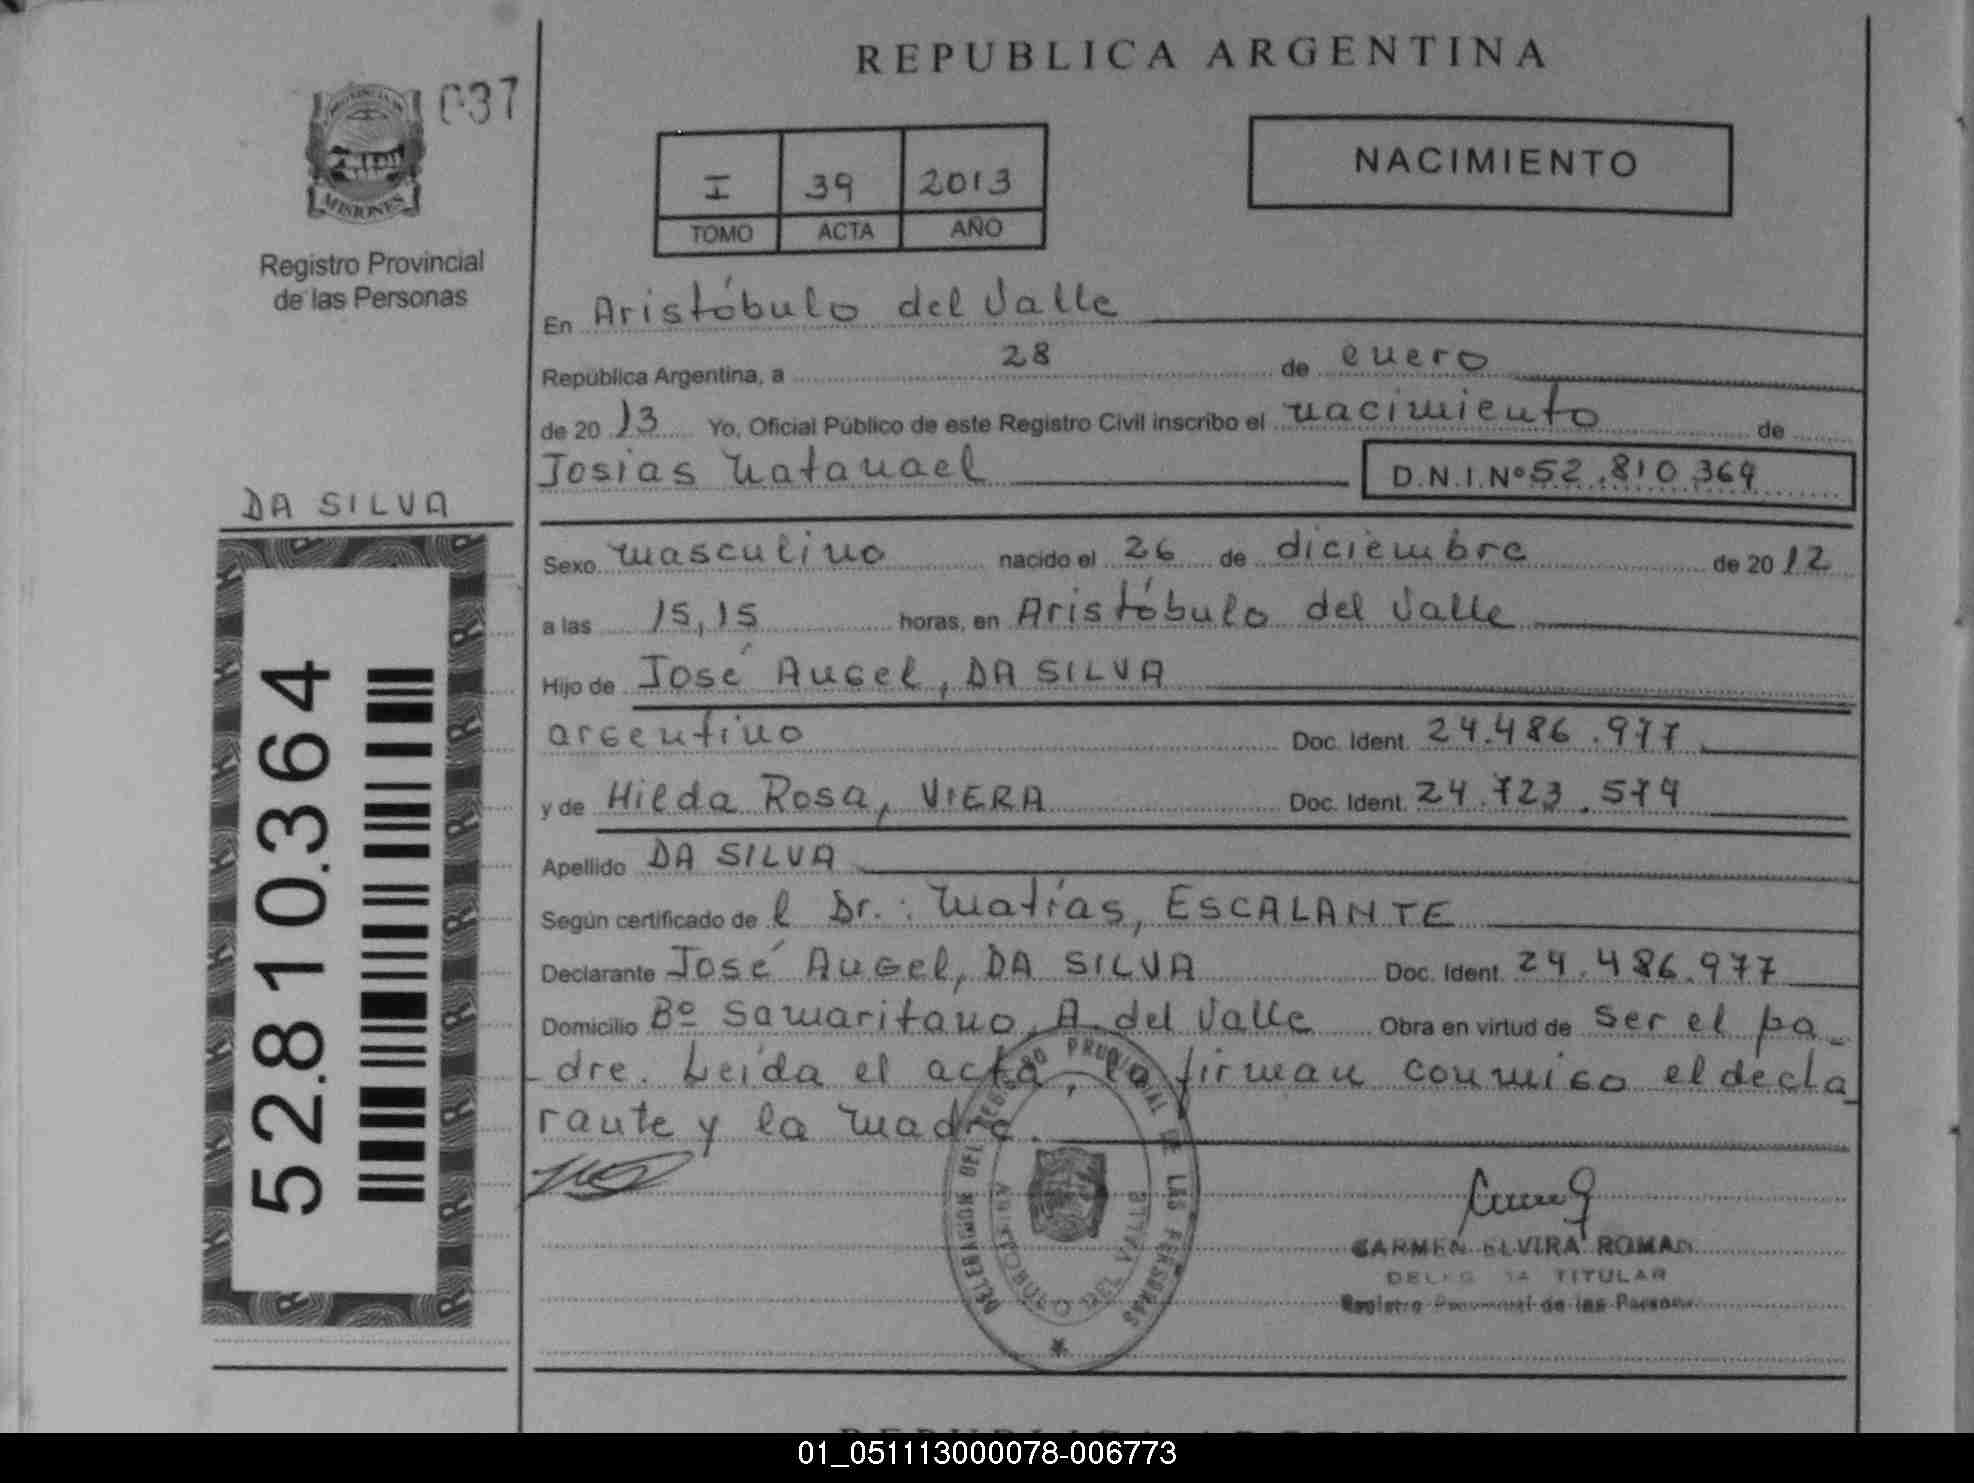 REPUBLICA ARGENTINA
037
PROVINCIA DE
MISIONES
Registro Provincial
de las Personas
I 39 2013
TOMO ACTA AÑO
NACIMIENTO
En Aristóbulo del Valle
República Argentina, a 28 de enero
de 2013 Yo, Oficial Público de este Registro Civil inscribo el nacimiento de
Josias Natanael D.N.I.Nº 52.810.364
DA SILVA
52.810.364
Sexo masculino nacido el 26 de diciembre de 2012
a las 15,15 horas, en Aristóbulo del Valle
Hijo de José Angel, DA SILVA
argentino Doc. Ident. 24.486.977
y de Hilda Rosa, VIERA Doc. Ident. 24.723.574
Apellido DA SILVA
Según certificado de l Dr.: Matías, ESCALANTE
Declarante José Angel, DA SILVA Doc. Ident. 24.486.977
Domicilio Bº Samaritano, A. del Valle Obra en virtud de ser el pa_
dre. Leída el acta, la firman conmigo el decla_
rante y la madre.
DELEGACION DEL REGISTRO PROVINCIAL DE LAS PERSONAS
ARISTOBULO DEL VALLE
CARMEN ELVIRA ROMAN
DELEGADA TITULAR
Registro Provincial de las Personas
01_051113000078-006773